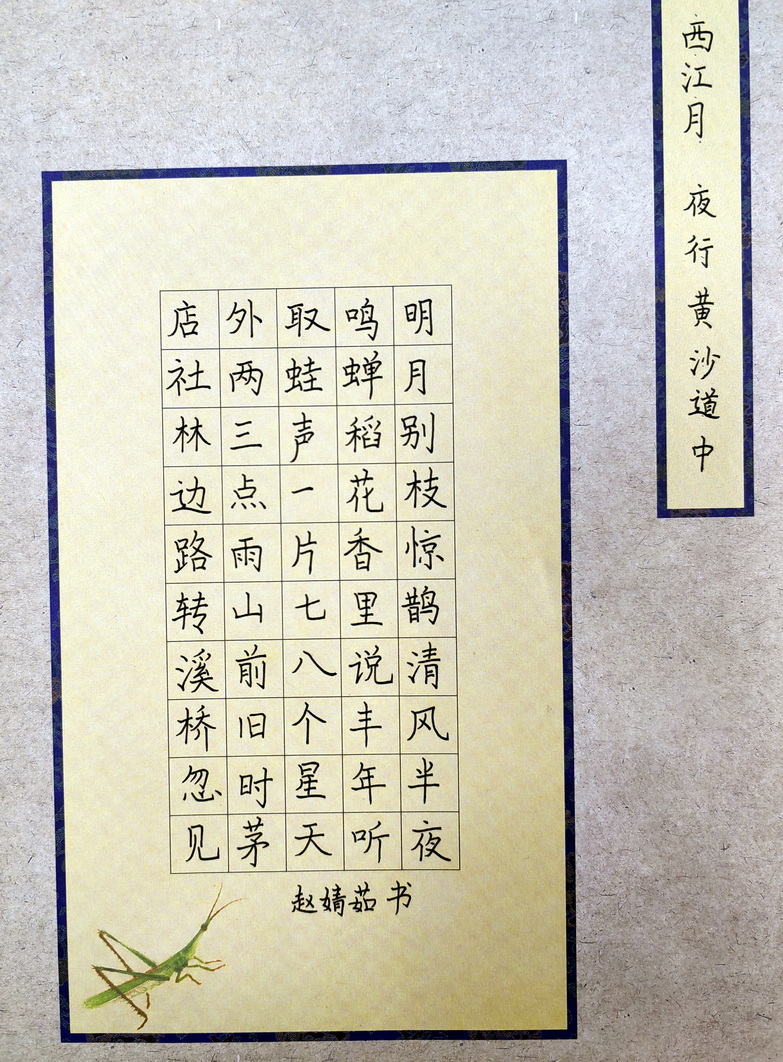 西江月 夜行黄沙道中
明月别枝惊鹊清风半夜
鸣蝉稻花香里说丰年听
取蛙声一片七八个星天
外两三点雨山前旧时茅
店社林边路转溪桥忽见
赵婧茹书